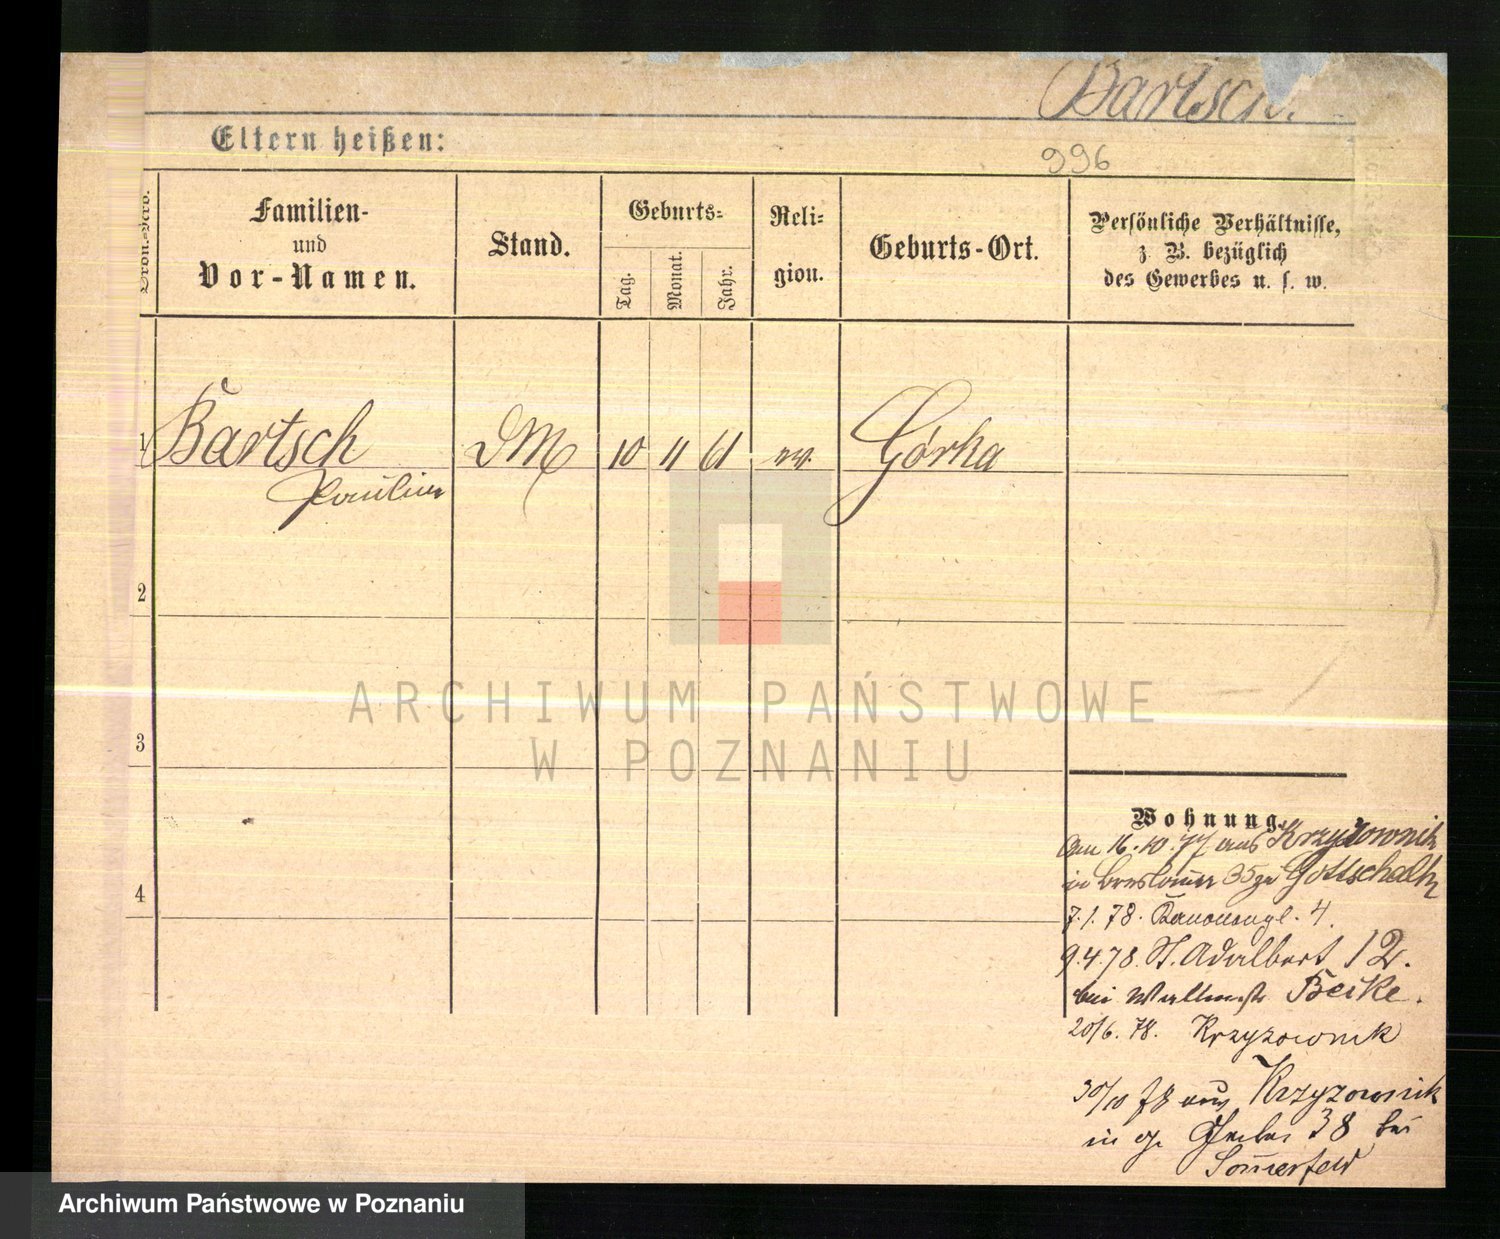 Bartsch.
Eltern heißen:
996
Ordn.-Nero.
Familien-
und
Vor-Namen.
Stand.
Geburts-
Tag.
Monat.
Jahr.
Reli-
gion.
Geburts-Ort.
Persönliche Verhältnisse,
z. B. bezüglich
des Gewerbes u. s. w.
1 Bartsch DM 10 11 61 ev. Górka
Paulina
2
ARCHIWUM PAŃSTWOWE
W POZNANIU
3
4
Wohnung.
Am 16.10.77 aus Krzyzownik
in Breslauer 35 zu Gottschalk
7.1.78. Kanonengl. 4.
9.4.78. St. Adalbert 12.
bei Beike.
20/6.78. Krzyzownik
30/10 78 aus Krzyzownik
in gr Gerber 38 bei
Somerfeld
Archiwum Państwowe w Poznaniu